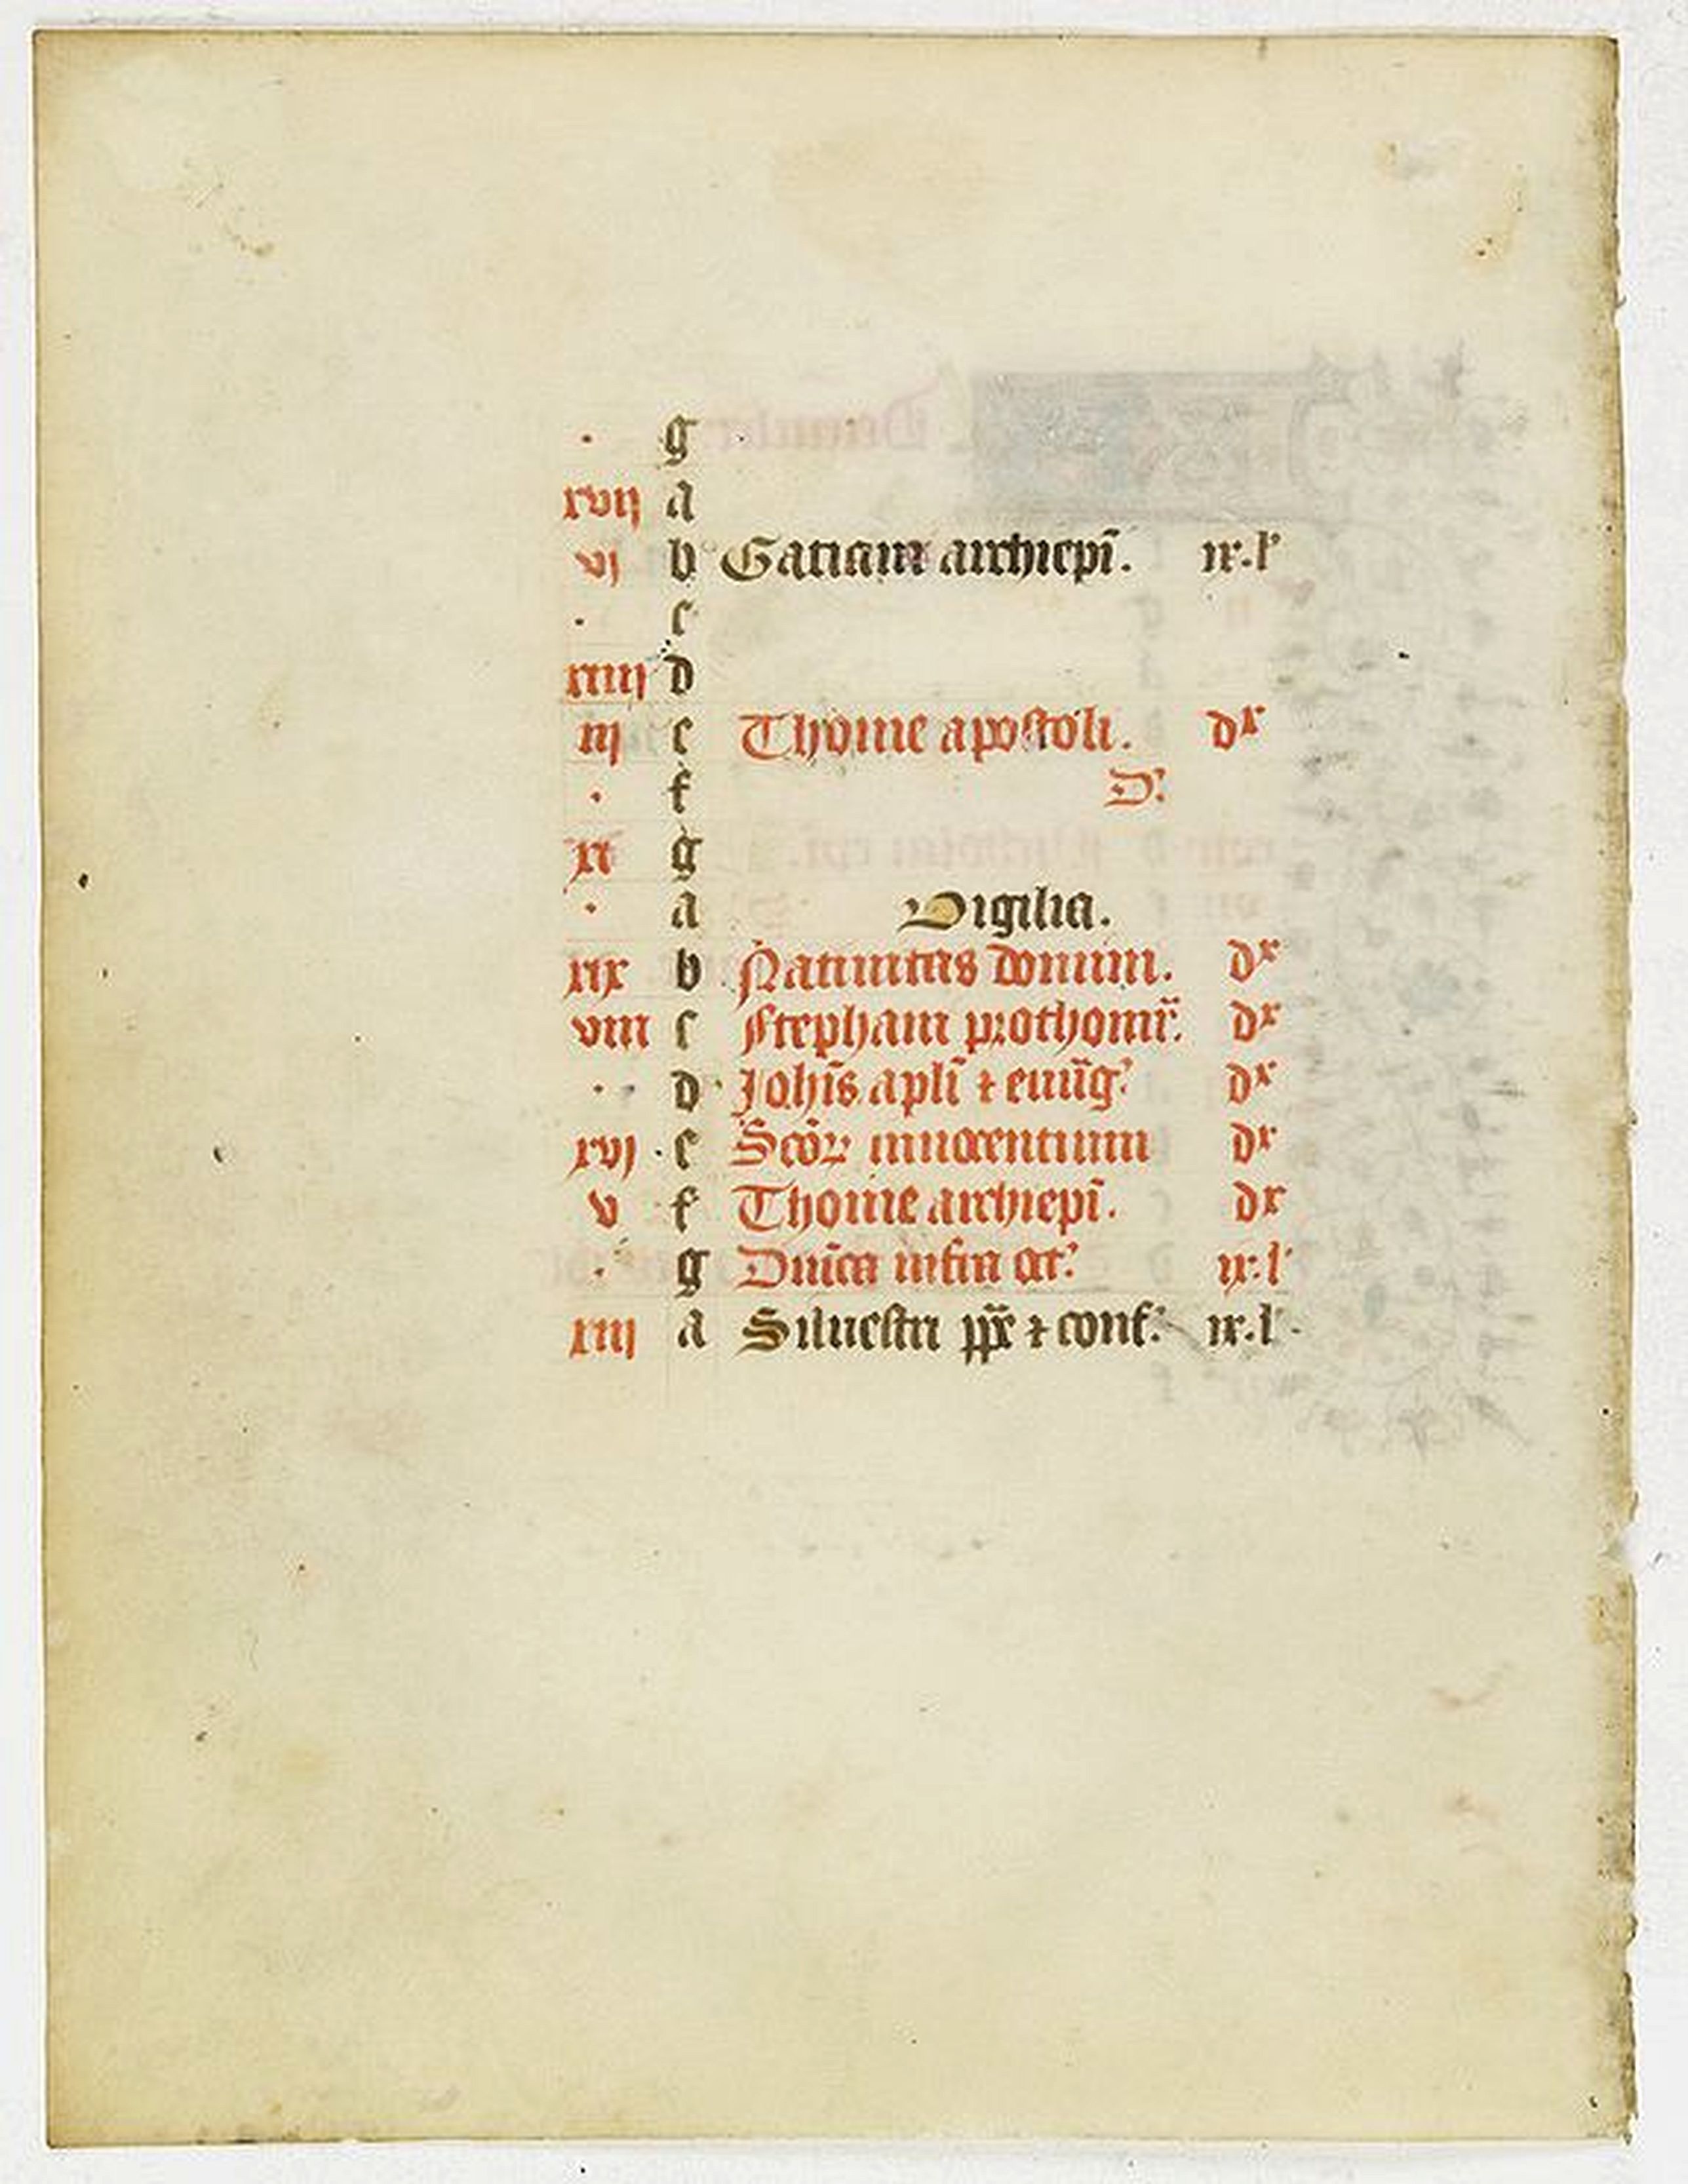 · g
xvij a
vj b Gaciani archiepĩ. ix.l'
· c
xiiij d
iij e Thome apostoli. dx
· f D.
xi g
· a Vigilia.
xix b Natiuitas domini. dx
viii c Stephani prothomr̃. dx
· d Johĩs aplĩ ⁊ euũg' dx
xvj e Scõꝝ innocentium dx
v f Thome archiepĩ. dx
· g Dnĩca infra oct' ix.l'
xiij a Siluestri pp̃e ⁊ conf. ix.l'